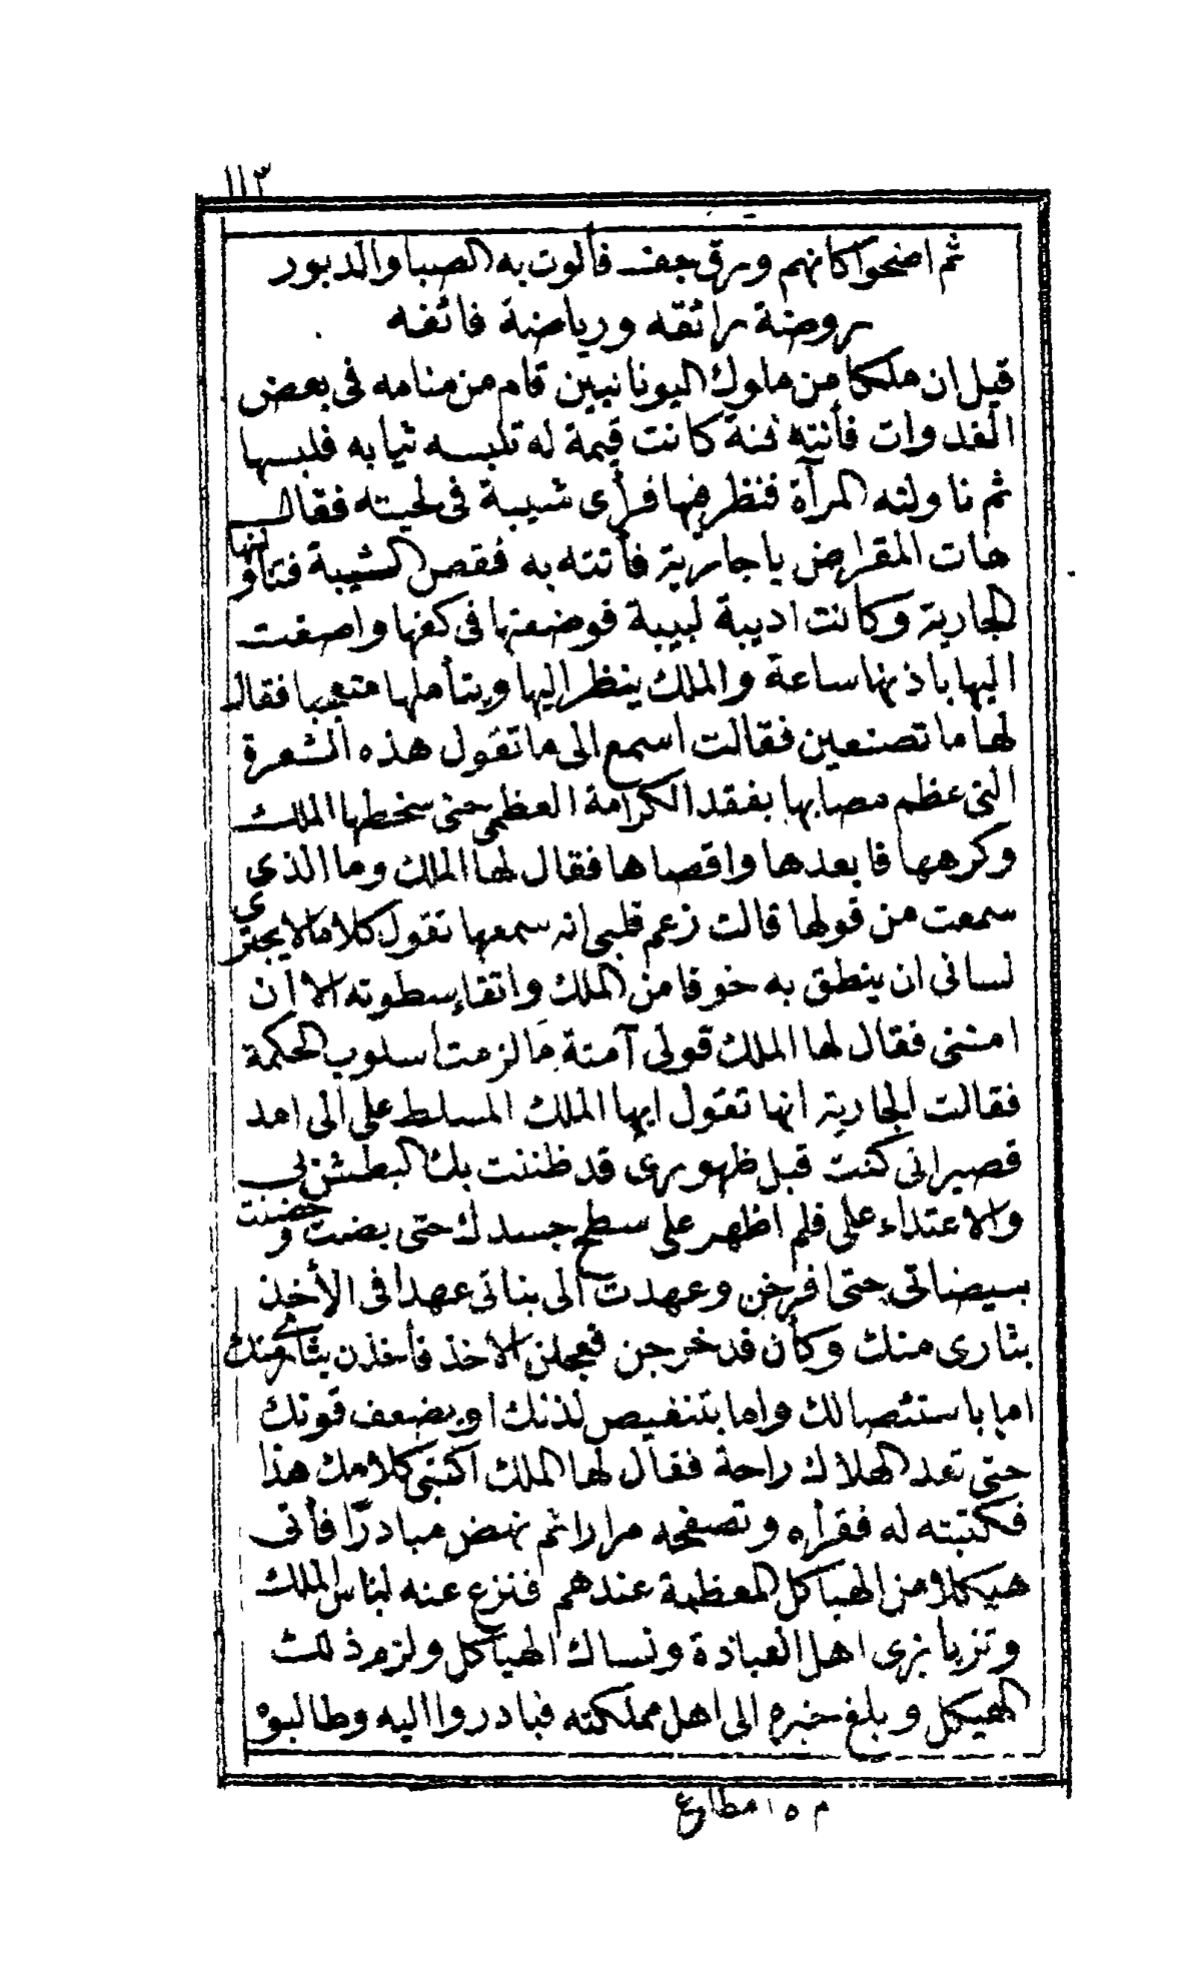 ١١٣
ثم اضحوا كانهم ورق جف فألوت به الصبا والدبور
روضة رائقه ورياضة فائقه
قيل ان ملكا من ملوك اليونانيين قام من منامه فى بعض
الغدوات فأتته قينة كانت قيمة له تلبسه ثيابه فلبسها
ثم ناولته المرآة فنظر فيها فرأى شيبة فى لحيته فقال
هات المقراض يا جارية فأتته به فقص الشيبة فتناولتها
الجارية وكانت اديبة لبيبة فوضعتها فى كفها واصغت
اليها باذنها ساعة والملك ينظر اليها ويتأملها متعجبا فقال
لها ما تصنعين فقالت اسمع الى ما تقول هذه الشعرة
التى عظم مصابها بفقد الكرامة العظمى حتى سخطها الملك
وكرهها فابعدها واقصاها فقال لها الملك وما الذى
سمعت من قولها قالت زعم قلبى انه سمعها تقول كلاما لا يجترى
لسانى ان ينطق به خوفا من الملك واتقاء سطوته الا ان
امننى فقال لها الملك قولى آمنة ما لزمت اسلوب الحكمة
فقالت الجارية انها تقول ايها الملك المسلط على الى امد
قصير انى كنت قبل ظهورى قد ظننت بك البطش بى
والاعتداء على فلم اظهر على سطح جسدك حتى بضت وحضنت
بيضاتى حتى افرخن وعهدت الى بناتى عهدا فى الأخذ
بثارى منك وكأن قد خرجن فعجلن الاخذ فأخذن بثارى منك
اما باستئصالك واما بتنغيص لذتك او بضعف قوتك
حتى تعد الهلاك راحة فقال لها الملك اكتبى كلامك هذا
فكتبته له فقرأه وتصفحه مرارا ثم نهض مبادرًا فأتى
هيكلا من الهياكل المعظمة عندهم فنزع عنه لباس الملك
وتزيا بزى اهل العبادة ونساك الهياكل ولزم ذلك
الهيكل وبلغ خبره الى اهل مملكته فبادروا اليه وطالبوه
م ١٥ مطالع